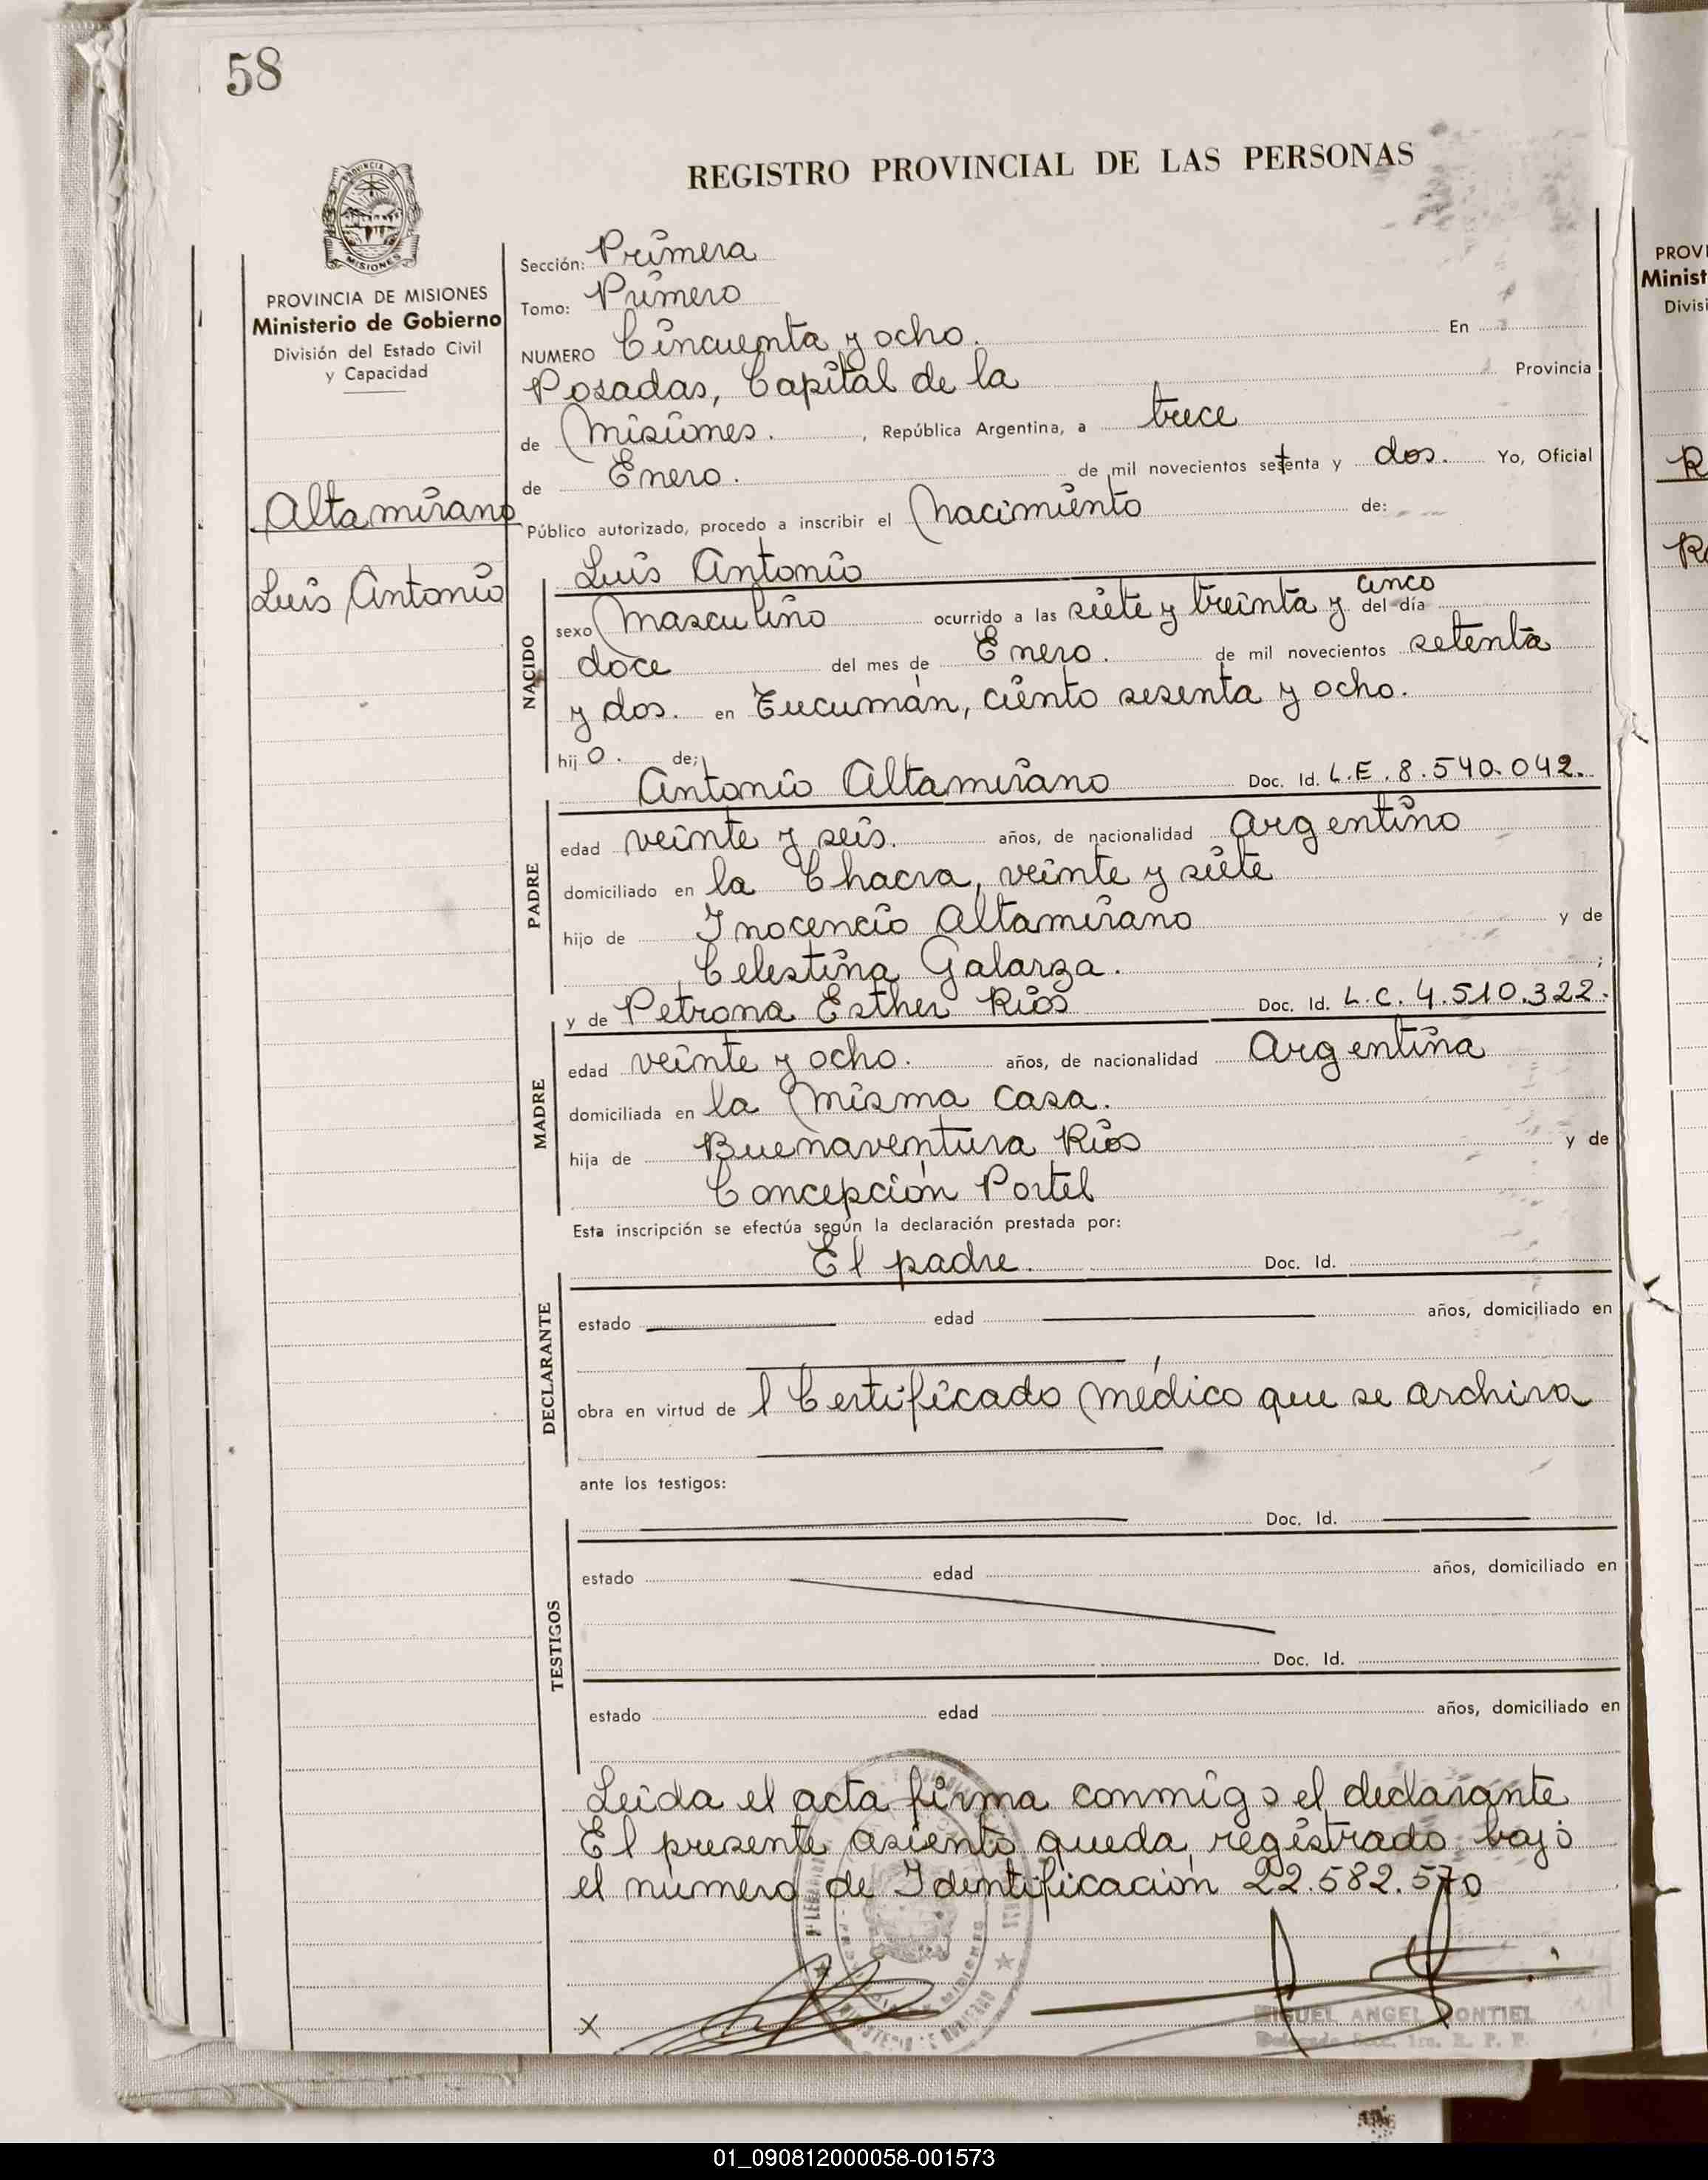 58
REGISTRO PROVINCIAL DE LAS PERSONAS
PROVINCIA DE MISIONES
Ministerio de Gobierno
División del Estado Civil
y Capacidad
Altamirano
Luis Antonio
Sección: Primera
Tomo: Primero
NUMERO Cincuenta y ocho. En
Posadas, Capital de la Provincia
de Misiones. , República Argentina, a trece
de Enero. de mil novecientos setenta y dos. Yo, Oficial
Público autorizado, procedo a inscribir el nacimiento de:
Luis Antonio
NACIDO
sexo masculino ocurrido a las siete y treinta y cinco del día
doce del mes de Enero. de mil novecientos setenta
y dos. en Tucumán, ciento sesenta y ocho.
hij o. de;
Antonio Altamirano Doc. Id. L.E. 8.540.042.
PADRE
edad veinte y seis. años, de nacionalidad Argentino
domiciliado en la Chacra, veinte y siete
hijo de Inocencio Altamirano y de
Celestina Galarza. ;
y de Petrona Esther Ríos Doc. Id. L.C. 4.510.322.
MADRE
edad veinte y ocho. años, de nacionalidad Argentina
domiciliada en la misma casa.
hija de Buenaventura Ríos y de
Concepción Portel
Esta inscripción se efectúa según la declaración prestada por:
El padre. Doc. Id.
DECLARANTE
estado edad años, domiciliado en
obra en virtud de l Certificado médico que se archiva
ante los testigos:
Doc. Id.
TESTIGOS
estado edad años, domiciliado en
Doc. Id.
estado edad años, domiciliado en
Leída el acta firma conmigo el declarante
El presente asiento queda registrado bajo
el número de Identificación 22.582.570
x
MIGUEL ANGEL MONTIEL
PROVI
Minist
Divisi
01_090812000058-001573